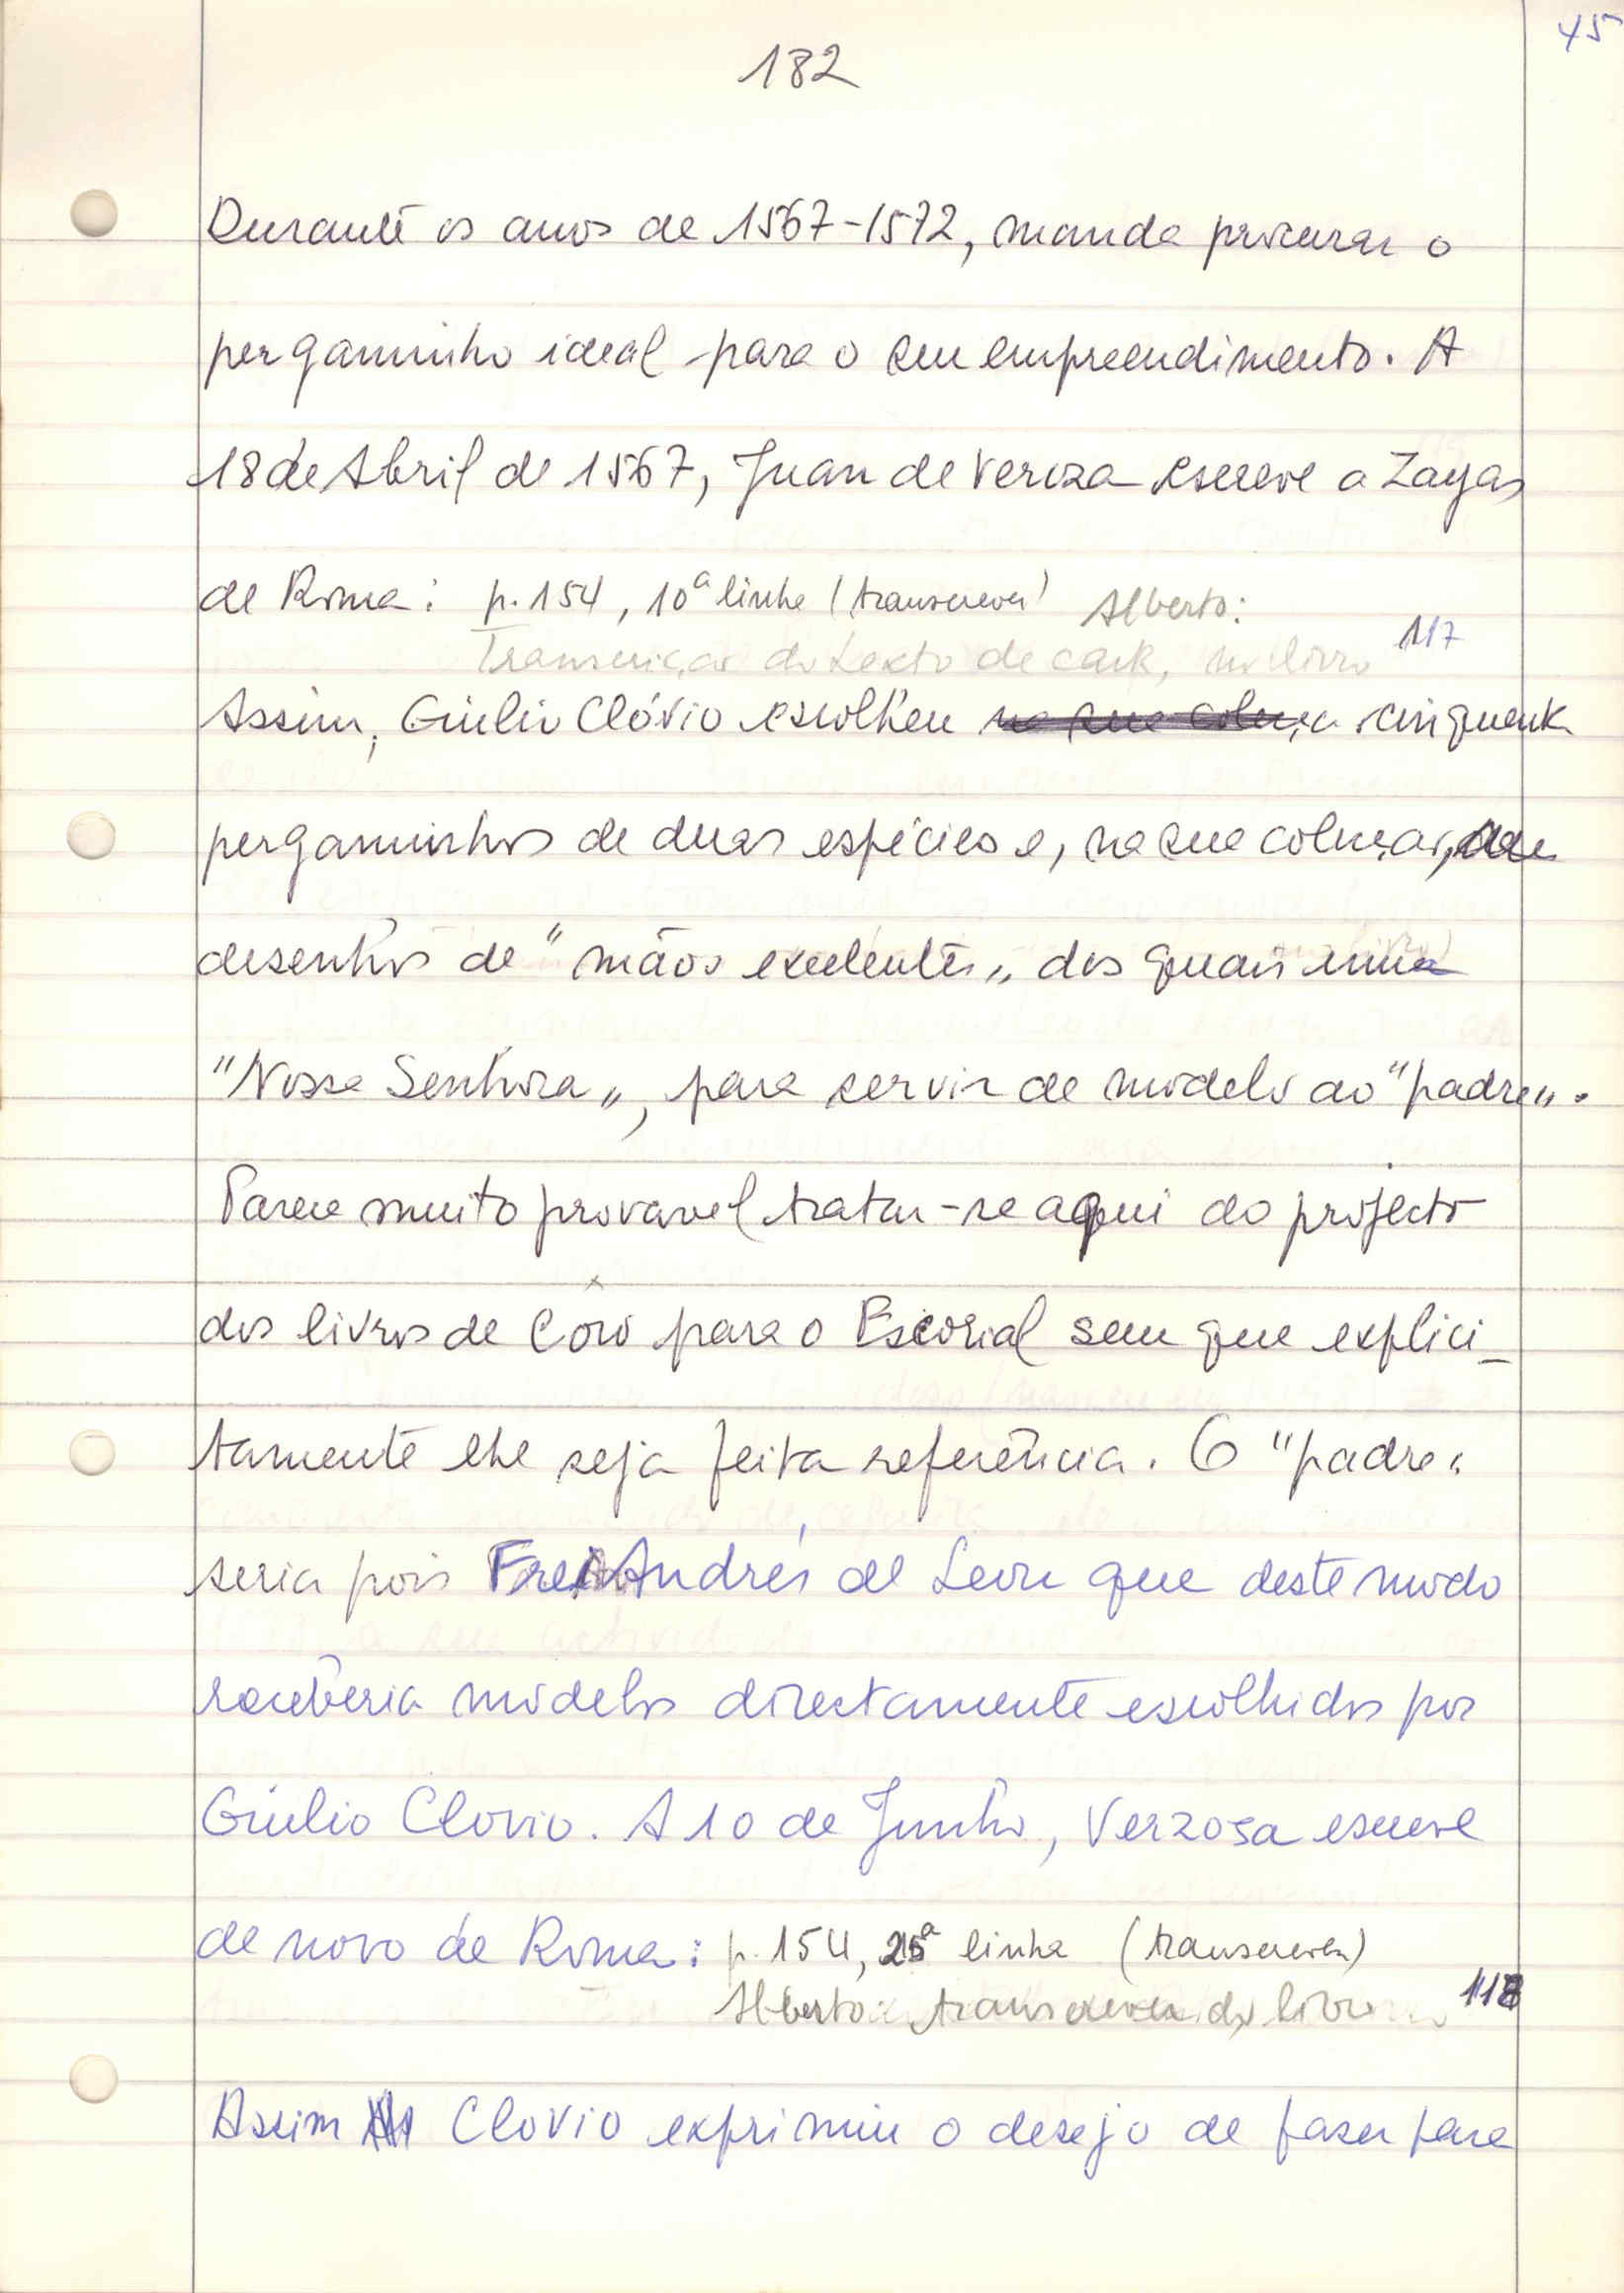 45
182
Durante os anos de 1567-1572, manda procurar o
pergaminho ideal para o seu empreendimento. A
18 de Abril de 1567, Juan de Verzosa escreve a Zayas
de Roma: p. 154, 10ª linha (transcrever) Alberto:
Transcrição do texto de cark, no livro 117
Assim, Giulio Clóvio escolheu cinquenta
pergaminhos de duas espécies e, na sua colecção,
desenhos de "mãos excelentes" dos quais uma
"Nossa Senhora", para servir de modelo ao "padre".
Parece muito provavel tratar-se aqui do projecto
dos livros de Côro para o Escorial sem que explici-
tamente lhe seja feita referência. O "padre"
seria pois Frei Andrés de Leon que deste modo
receberia modelos directamente escolhidos por
Giulio Clovio. A 10 de Junho, Verzosa escreve
de novo de Roma: p. 154, 25ª linha (transcrever)
Alberto: transcrever do livro 118
Assim Clovio exprimiu o desejo de fazer para